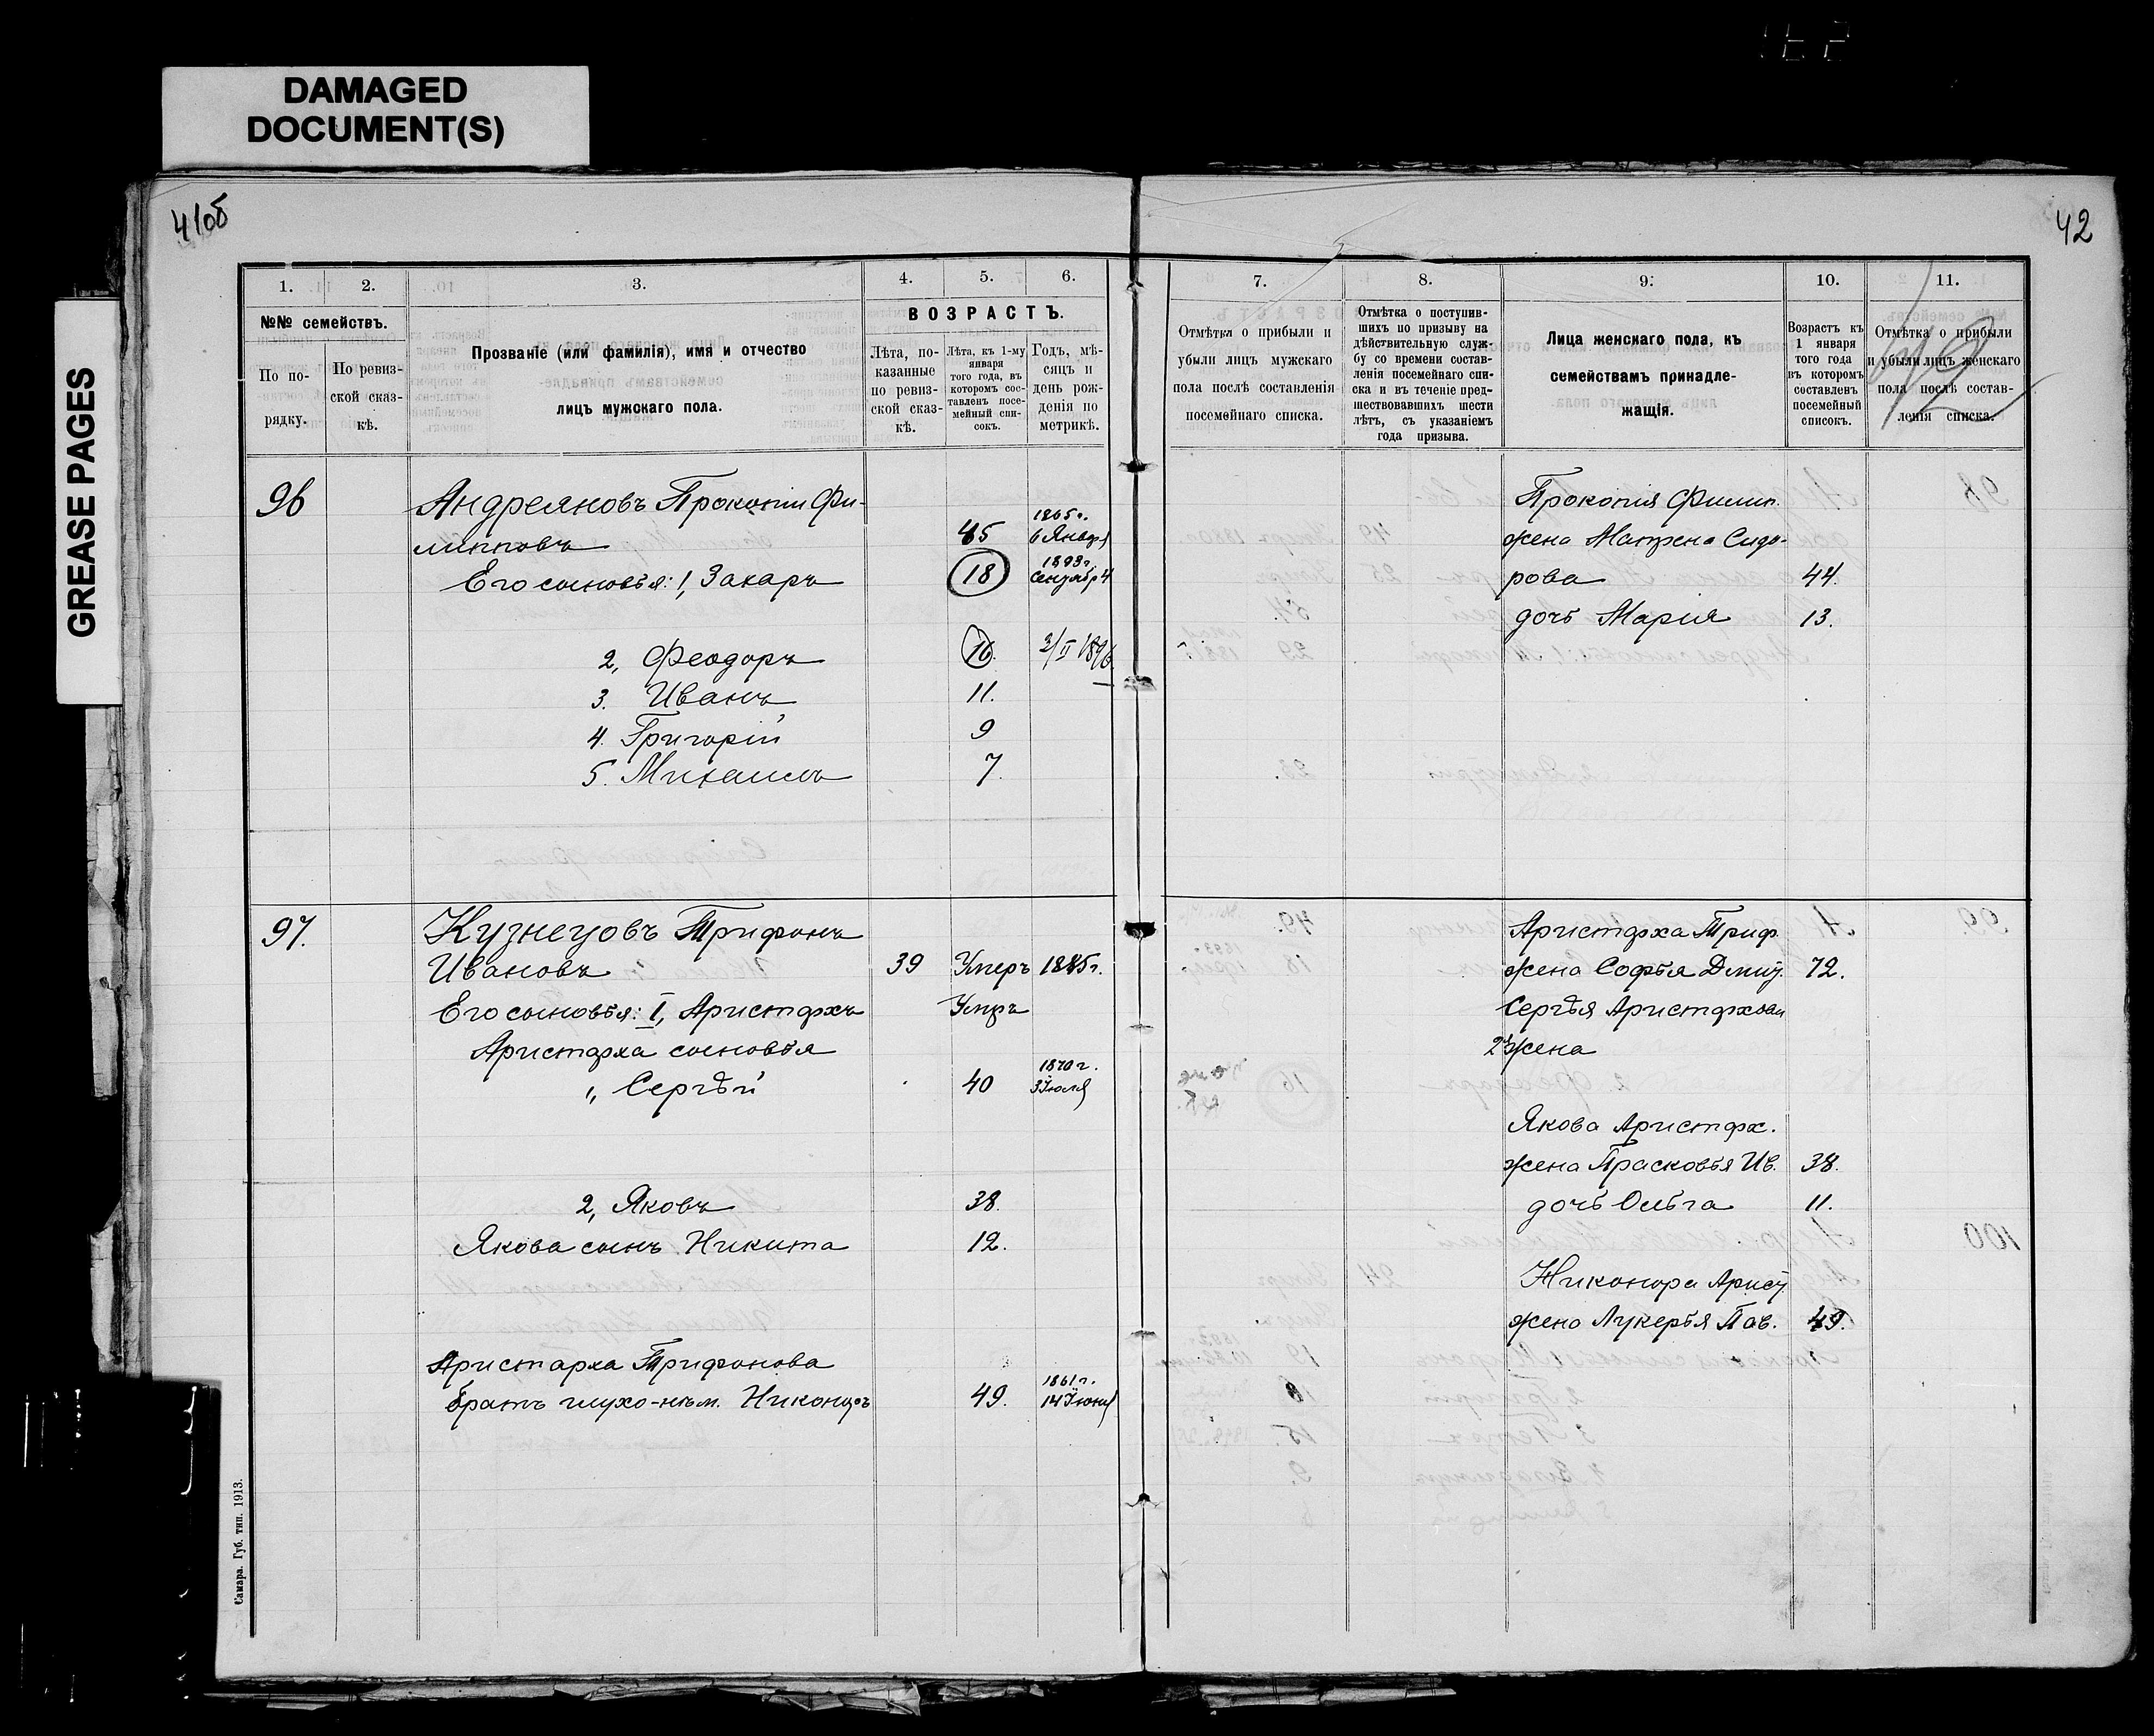 DAMAGED
DOCUMENT(S)
GREASE PAGES
41об
42
1.
2.
3.
4.
5.
6.
№№ семействъ.
По по-
рядку.
По ревиз-
ской сказ-
кѣ.
Прозваніе (или фамилія), имя и отчество
лицъ мужскаго пола.
ВОЗРАСТЪ.
Лѣта, по-
казанные
по ревиз-
ской сказ-
кѣ.
Лѣта, къ 1-му
января
того года, въ
которомъ сос-
тавленъ посе-
мейный спи-
сокъ.
Годъ, мѣ-
сяцъ и
день рож-
денія по
метрикѣ.
96
Андреяновъ Прокопій Фи-
липповъ 45 1865 г. 6 Январ
Его сыновья: 1, Захаръ 18 1893 г. Сентябр 4
2, Феодоръ 16. 2/II 1896
3. Иванъ 11.
4. Григорій 9
5. Михаилъ 7.
97.
Кузнецовъ Трифонъ
Ивановъ 39 Умеръ 1885 г.
Его сыновья: 1, Аристархъ Умеръ
Аристарха сыновья
„ Сергѣй 40 1870 г. 3 Іюля
2, Яковъ 38.
Якова сынъ Никита 12.
Аристарха Трифонова
братъ глухо-нѣм. Никоноръ 49. 1861 г. 14 Іюня
Самара. Губ. тип. 1913.
7.
8.
9.
10.
11.
Отмѣтка о прибыли и
убыли лицъ мужскаго
пола послѣ составленія
посемейнаго списка.
Отмѣтка о поступив-
шихъ по призыву на
дѣйствительную служ-
бу со времени состав-
ленія посемейнаго спи-
ска и въ теченіе пред-
шествовавшихъ шести
лѣтъ, съ указаніемъ
года призыва.
Лица женскаго пола, къ
семействамъ принадле-
жащія.
Возрастъ къ
1 января
того года
въ которомъ
составленъ
посемейный
списокъ.
Отмѣтка о прибыли
и убыли лицъ женскаго
пола послѣ состав-
ленія списка.
Прокопія Филип.
жена Матрена Сидо-
рова 44.
дочь Марія 13.
Аристарха Триф.
жена Софья Дмит. 72.
Сергѣя Аристархова
2я жена
Якова Аристарх.
жена Прасковья Ив. 38.
дочь Ольга 11.
Никонора Арист.
жена Лукерья Пав. 49.